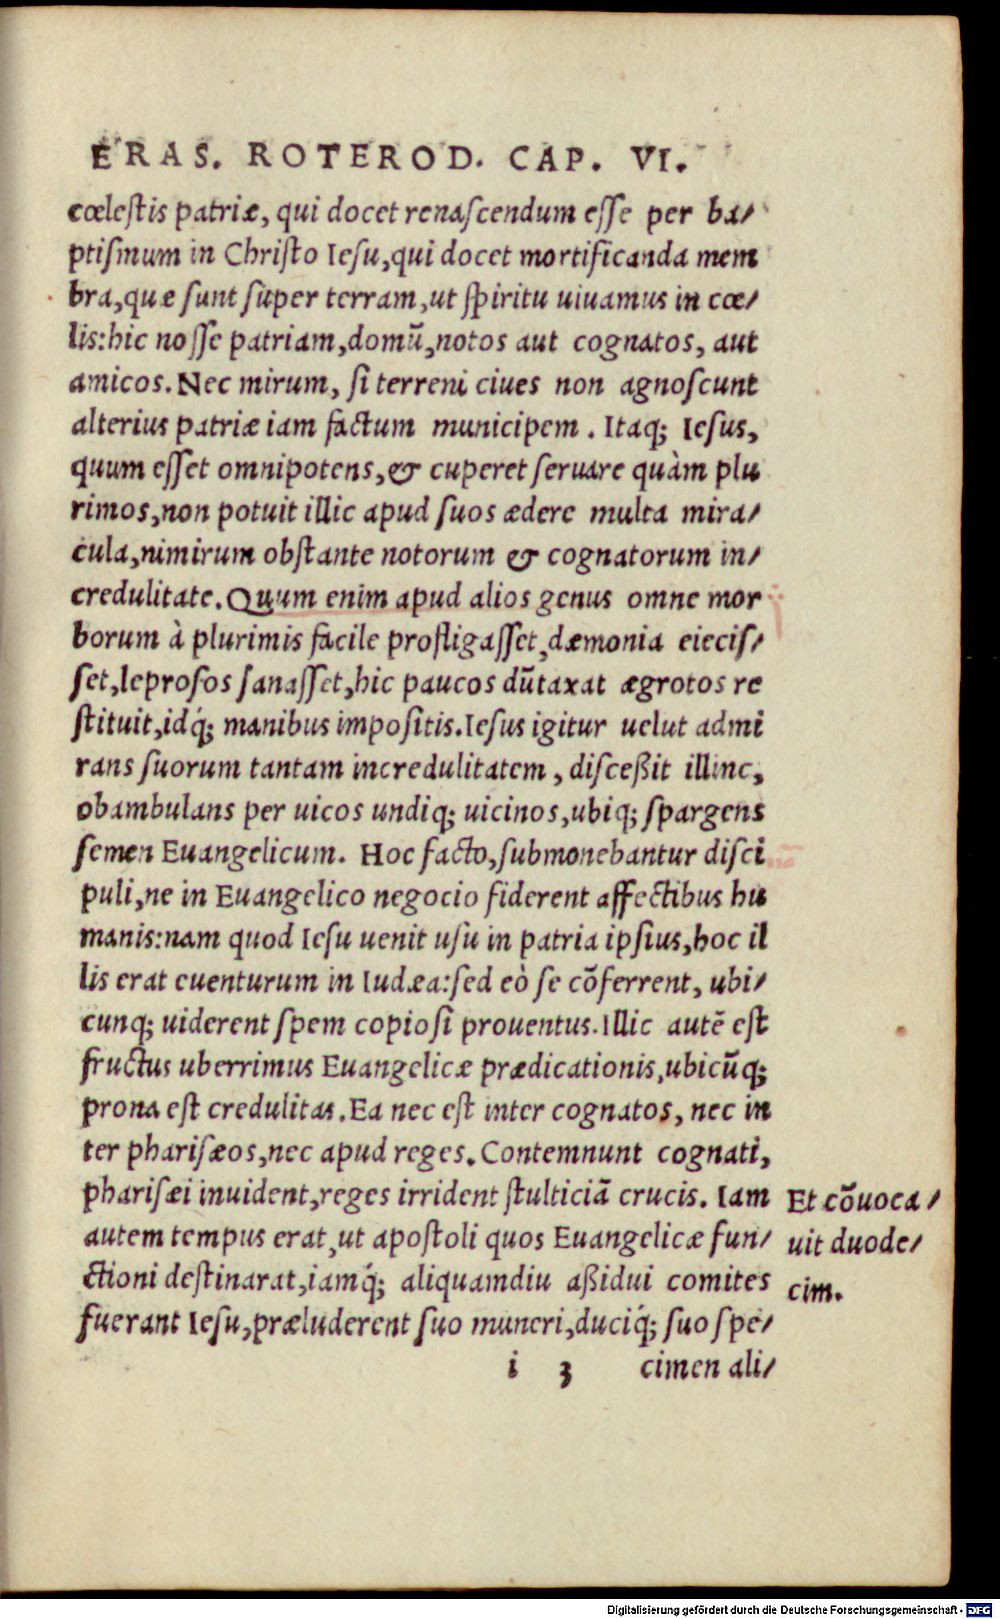 ERAS. ROTEROD. CAP. VI.
cœlestis patriæ, qui docet renascendum esse per ba/
ptismum in Christo Iesu, qui docet mortificanda mem
bra, quæ sunt super terram, ut spiritu uiuamus in cœ/
lis: hic nosse patriam, domū, notos aut cognatos, aut
amicos. Nec mirum, si terreni ciues non agnoscunt
alterius patriæ iam factum municipem. Itaq; Iesus,
quum esset omnipotens, & cuperet seruare quàm plu
rimos, non potuit illic apud suos ædere multa mira/
cula, nimirum obstante notorum & cognatorum in/
credulitate. Quum enim apud alios genus omne mor
borum à plurimis facile profligasset, dæmonia eiecis/
set, leprosos sanasset, hic paucos dūtaxat ægrotos re
stituit, idq́; manibus impositis. Iesus igitur uelut admi
rans suorum tantam incredulitatem, disceßit illinc,
obambulans per uicos undiq; uicinos, ubiq; spargens
semen Euangelicum. Hoc facto, submonebantur disci
puli, ne in Euangelico negocio fiderent affectibus hu
manis: nam quod Iesu uenit usu in patria ipsius, hoc il
lis erat euenturum in Iudæa: sed eò se cōferrent, ubi/
cunq; uiderent spem copiosi prouentus. Illic autē est
fructus uberrimus Euangelicæ prædicationis, ubicūq;
prona est credulitas. Ea nec est inter cognatos, nec in
ter pharisæos, nec apud reges. Contemnunt cognati,
pharisæi inuident, reges irrident stulticiā crucis. Iam
autem tempus erat, ut apostoli quos Euangelicæ fun/
ctioni destinarat, iamq́; aliquamdiu aßidui comites
fuerant Iesu, præluderent suo muneri, duciq́; suo spe/
i 3 cimen ali/
Et cōuoca/
uit duode/
cim.
Digitalisierung gefördert durch die Deutsche Forschungsgemeinschaft - DFG